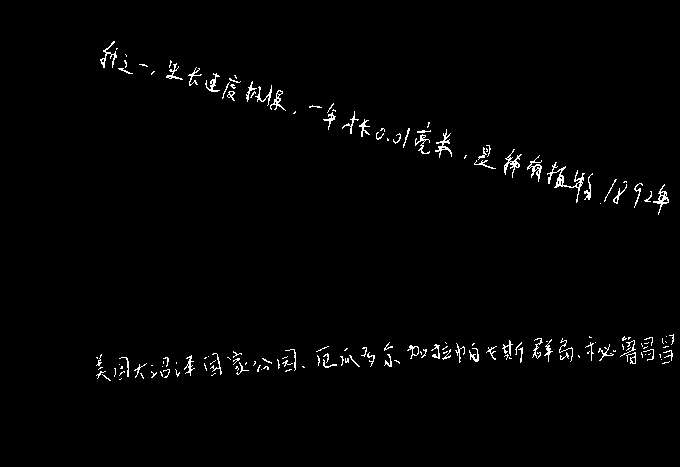 种之一,生长速度极慢,一年才长0.01毫米,是稀有植物.1892年
美国大沼泽国家公园、厄瓜多尔加拉帕戈斯群岛、秘鲁昌昌